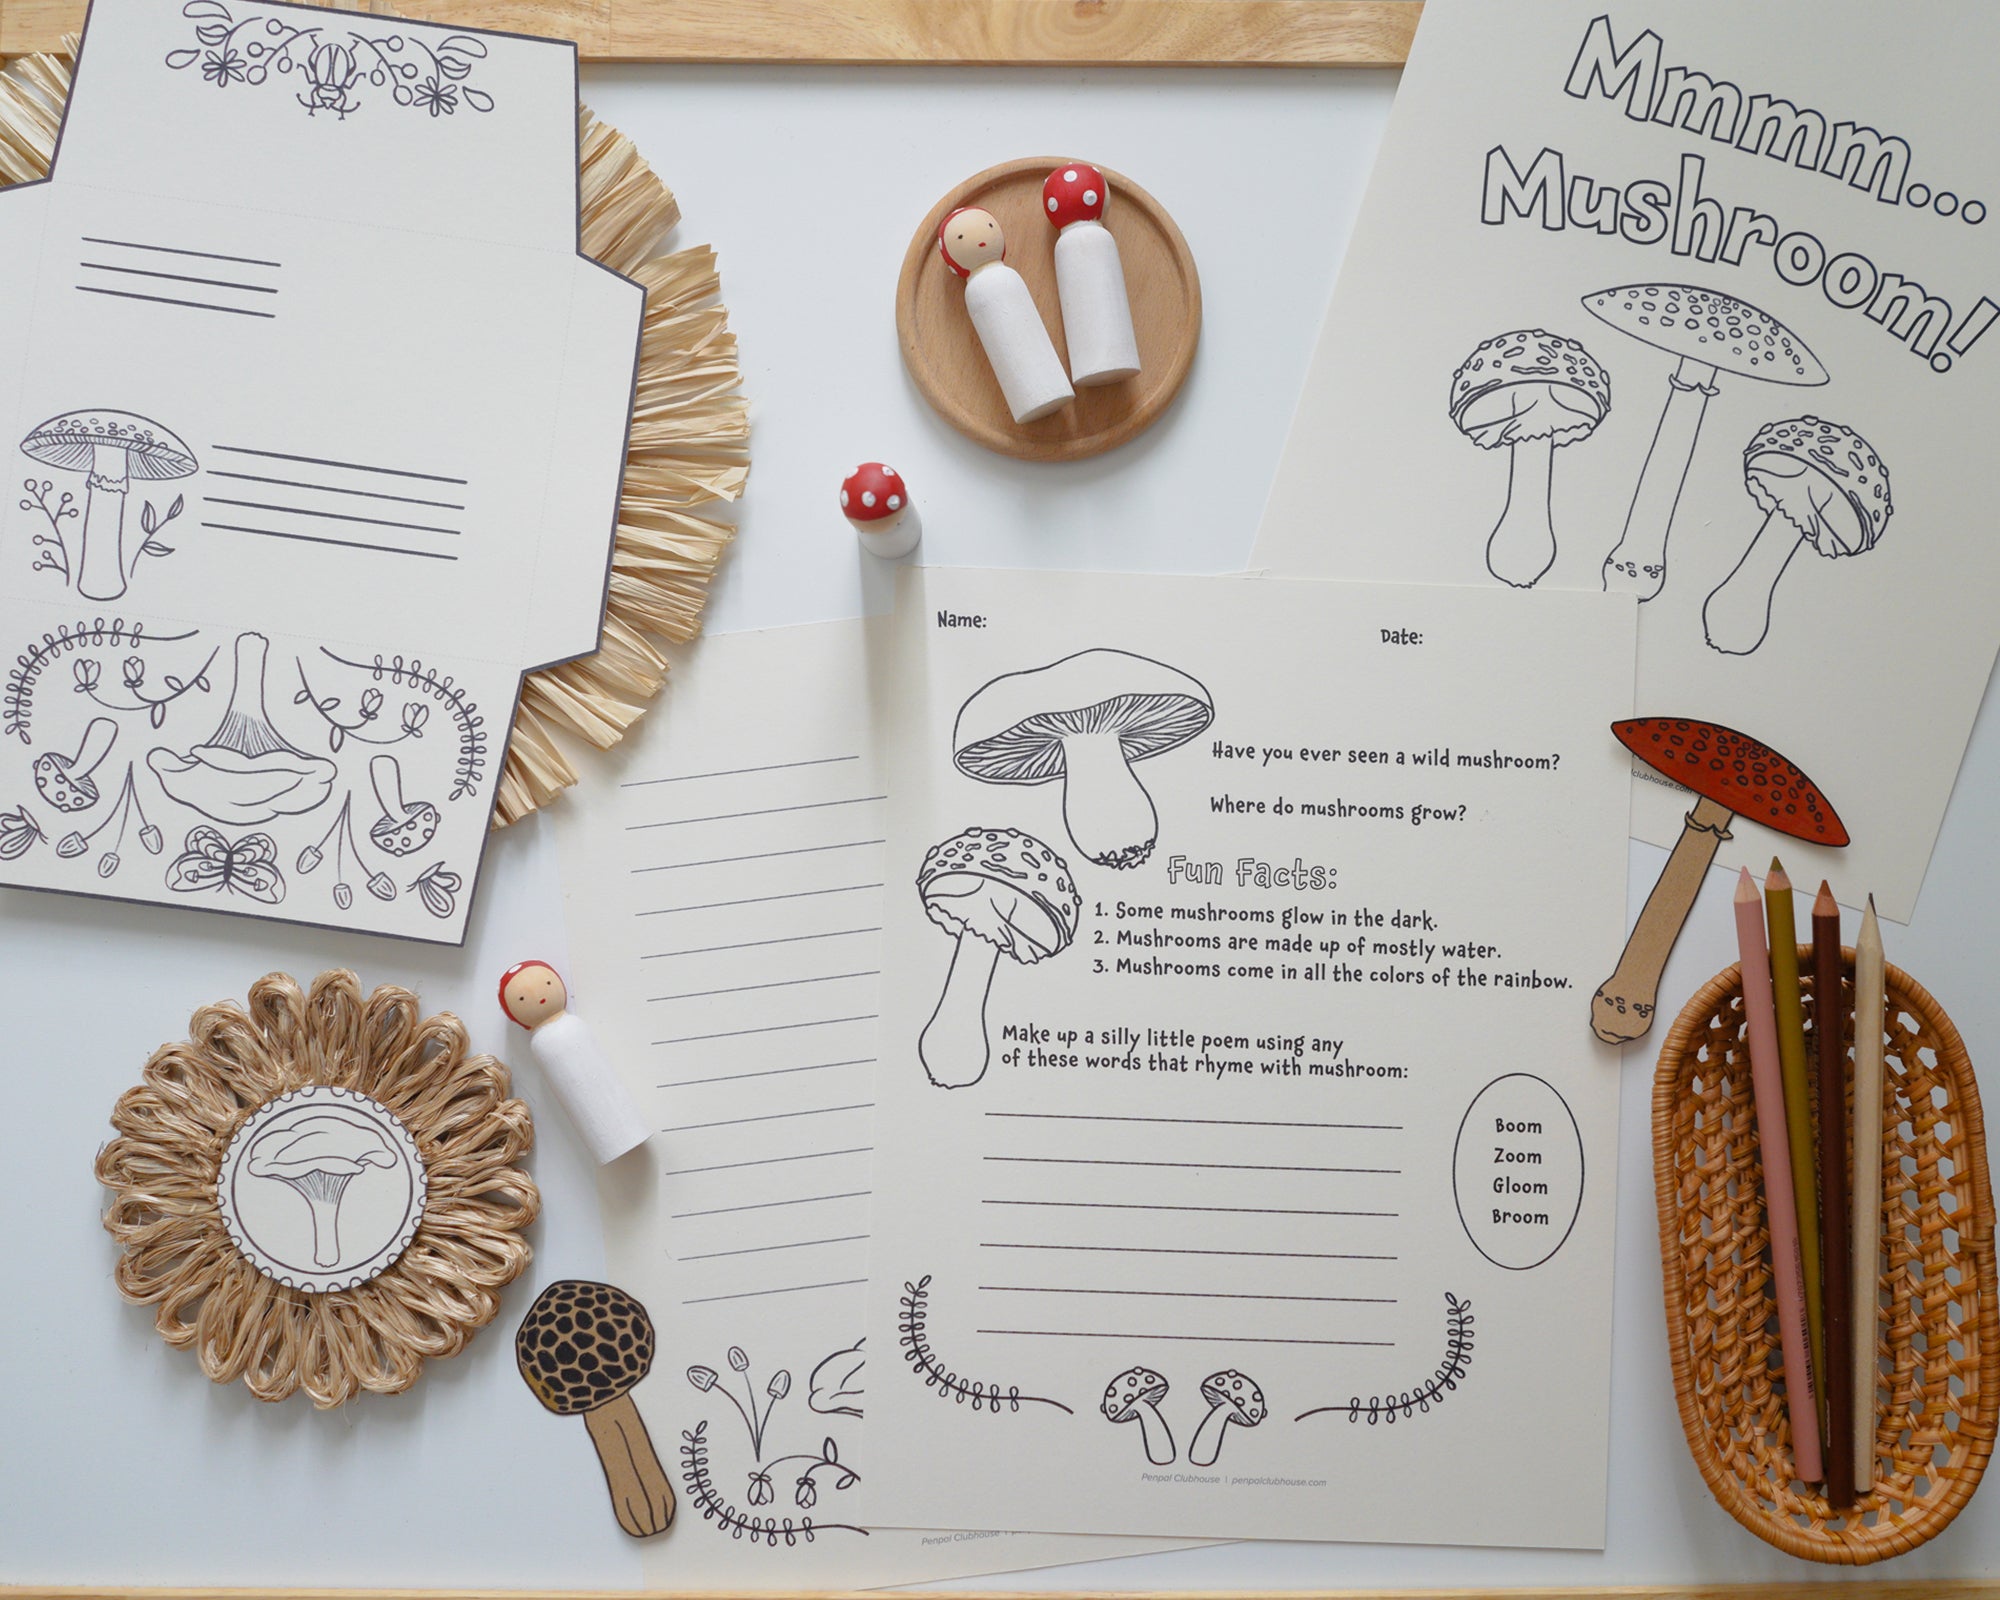 Mmmm...
Mushroom!
clubhouse.com
Name:
Date:
Have you ever seen a wild mushroom?
Where do mushrooms grow?
Fun Facts:
1. Some mushrooms glow in the dark.
2. Mushrooms are made up of mostly water.
3. Mushrooms come in all the colors of the rainbow.
Make up a silly little poem using any
of these words that rhyme with mushroom:
Boom
Zoom
Gloom
Broom
Penpal Clubhouse | penpalclubhouse.com
Penpal Clubhouse